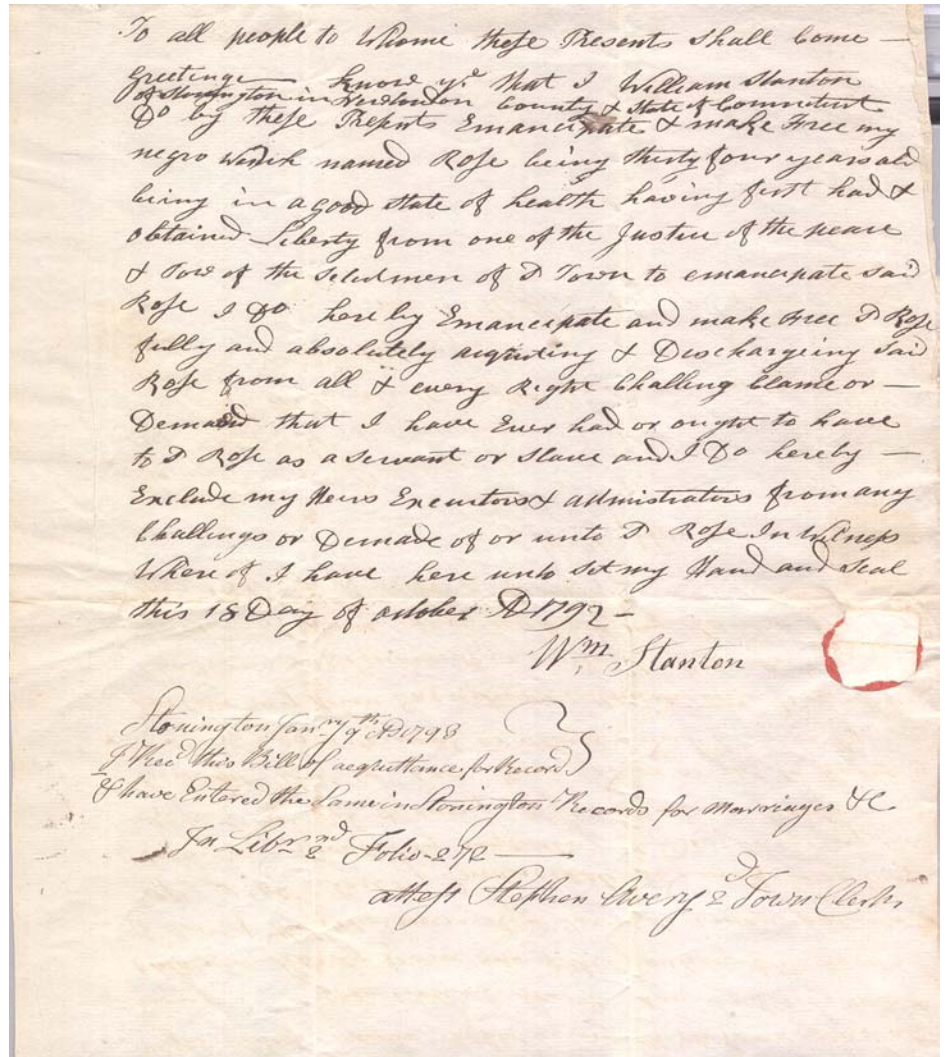 To all people to Whome these Presents Shall Come —
Greetinge — Know ye that I William Stanton
of Stonington in Newlondon County & State of Connecticut
Do by these Presents Emancipate & make Free my
negro named Rose being thirty four years old
being in a good state of health having first had &
obtained Liberty from one of the Justice of the peace
& Tow of the Selectmen of sd Town to emancipate said
Rose I Do hereby Emancipate and make Free sd Rose
fully and absolutely acquiting & Dischargeing said
Rose from all & every Right Challing Clame or —
Demand that I have Ever had or ought to have
to sd Rose as a servant or slave and I Do hereby —
Exclude my Heirs Executors & administrators from any
Challings or Demade of or unto sd Rose In Witness
Where of I have here unto set my Hand and seal
this 18 Day of october AD 1797 —
Wm. Stanton
Stonington Janry 9th AD 1798
I Recd this Bill of acquittance for Record
& have Entered the Same in Stonington Records for Marriages &C
In Libr 2nd Folio-272 —
attest Stephen Avery 2d Town Clerk